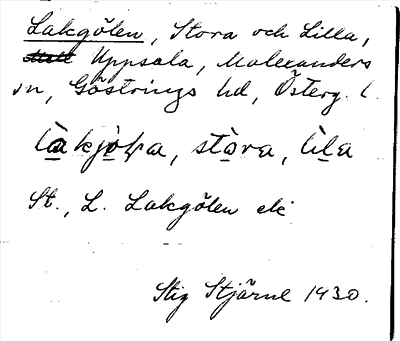 Lakgölen, Stora och Lilla,
Uppsala, Malexanders
sn, Göstrings hd, Österg. l.
stòra, lìla
St., L. Lakgölen ek
Stig Stjärne 1930.